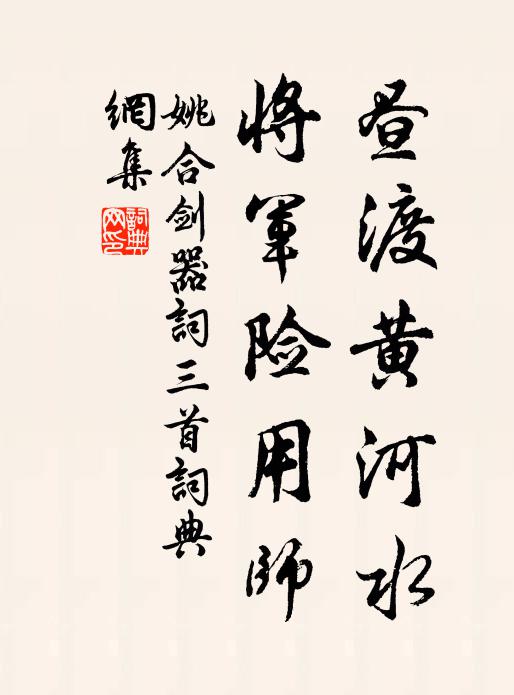 昼渡黄河水
将軍险用师
姚合剑器詞三首詞典
網集
詞典
网印